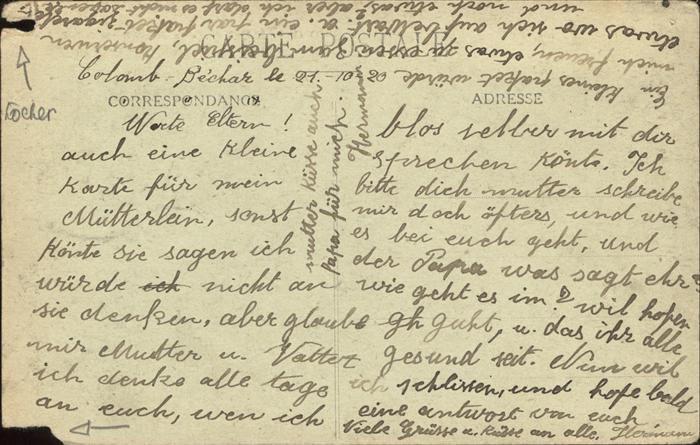 CARTE POSTALE
Colomb-Béchar le 21.-10-20
CORRESPONDANCE
Werte Eltern!
auch eine kleine
Karte für mein
Mütterlein, sonst
könte sie sagen ich
würde ich nicht an
sie denken, aber glaube
mir Mutter u. Vatter
ich denke alle tage
an euch, wen ich
ADRESSE
blos selber mit dir
sprechen könte. Ich
bitte dich mutter schreibe
mir doch öfters, und wie
es bei euch geht, und
der Papa was sagt ehr?
wie geht es im? wil hofen
gh guht, u. das ihr alle
gesund seit. Nun wil
ich schlissen, und hofe bald
eine antwort von euch
Viele Grüsse u. küsse an alle. Herman
mutter küsse auch
Papa für mich. Hermann
Ein kleines paket würde
mich freuen, etwas zu essen
etwas wo sich auf bewart u. ein par paket
und noch etwas aber ich darf es nicht
Löcher